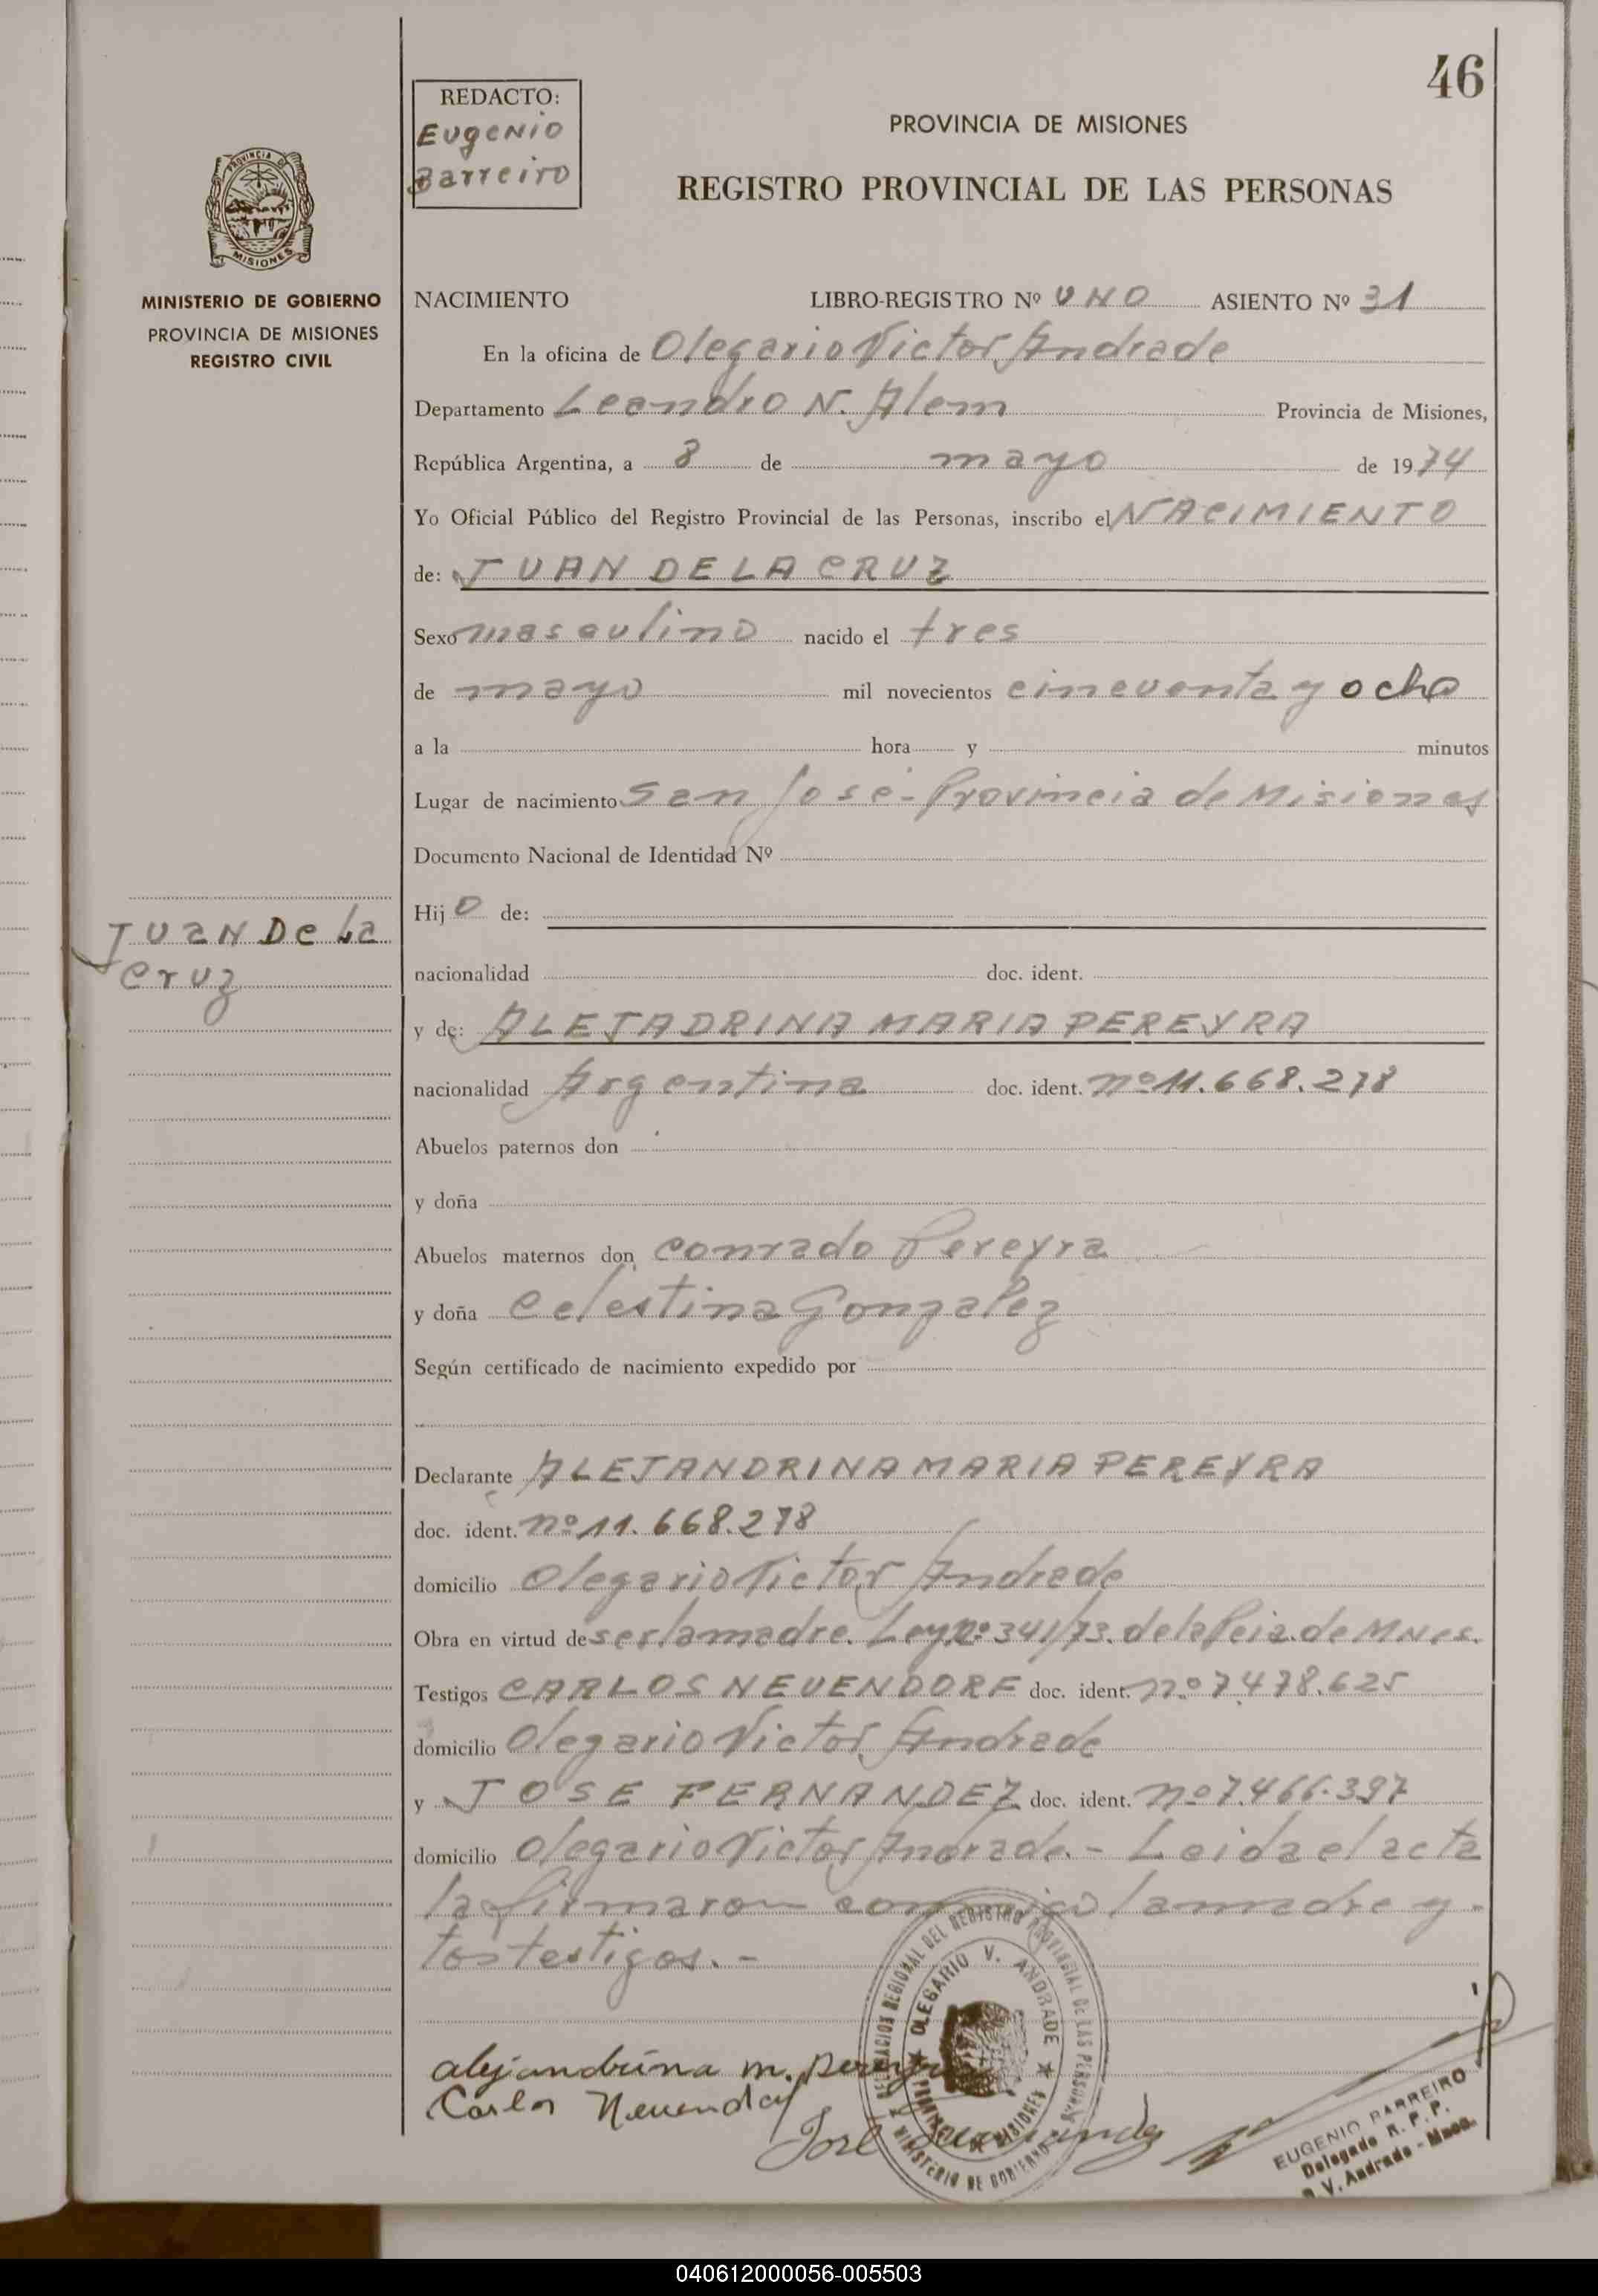 46
REDACTO:
Eugenio
Barreiro
PROVINCIA DE MISIONES
REGISTRO PROVINCIAL DE LAS PERSONAS
PROVINCIA DE
MISIONES
MINISTERIO DE GOBIERNO
PROVINCIA DE MISIONES
REGISTRO CIVIL
NACIMIENTO LIBRO-REGISTRO Nº UNO ASIENTO Nº 31
En la oficina de Olegario Victor Andrade
Departamento Leandro N. Alem Provincia de Misiones,
República Argentina, a 8 de mayo de 1974
Yo Oficial Público del Registro Provincial de las Personas, inscribo el NACIMIENTO
de: JUAN DE LA CRUZ
Sexo masculino nacido el tres
de mayo mil novecientos cincuenta y ocho
a la hora y minutos
Lugar de nacimiento San José - Provincia de Misiones
Documento Nacional de Identidad Nº
Hijo de:
JUAN De La
Cruz
nacionalidad doc. ident.
y de: ALEJADRINA MARIA PEREYRA
nacionalidad Argentina doc. ident. nº 11.668.278
Abuelos paternos don
y doña
Abuelos maternos don Conrado Pereyra
y doña Celestina Gonzalez
Según certificado de nacimiento expedido por
Declarante ALEJANDRINA MARIA PEREYRA
doc. ident. nº 11.668.278
domicilio Olegario Victor Andrade
Obra en virtud de ser la madre. Ley nº 341/73. de la Pcia. de Mnes.
Testigos CARLOS NEUENDORF doc. ident. nº 7.478.625
domicilio Olegario Victor Andrade
y JOSE FERNANDEZ doc. ident. nº 7.466.397
domicilio Olegario Victor Andrade. - Leida el acta
la firmaron conmigo la madre y
los testigos. -
DELEGACION REGIONAL DEL REGISTRO PROVINCIAL DE LAS PERSONAS
OLEGARIO V. ANDRADE
PROVINCIA DE MISIONES
MINISTERIO DE GOBIERNO
alejandrina m. Pereyra
Carlos Neuendorf
José Fernandez
EUGENIO BARREIRO
Delegado R. P. P.
O. V. Andrade - Mnes.
040612000056-005503